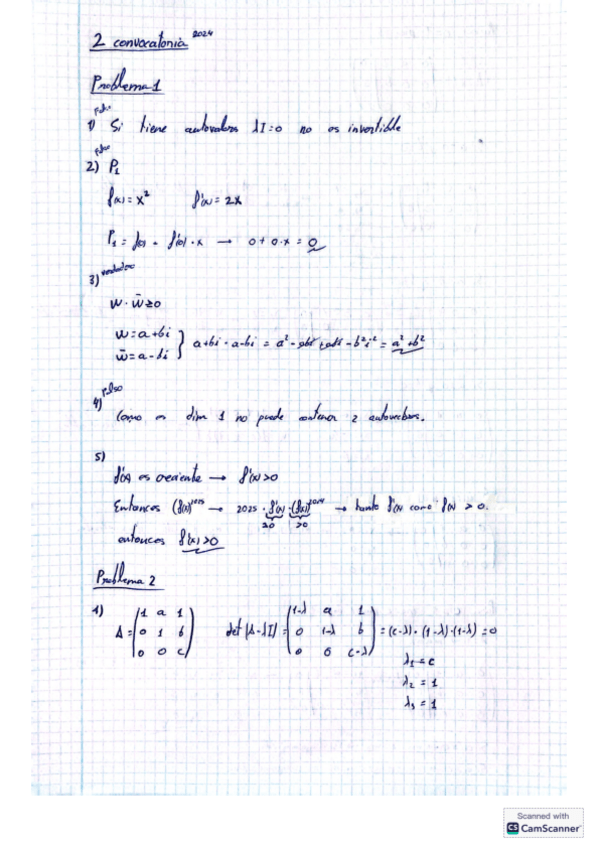 2 convocatoria 2024
Problema 1
falso
1) Si tiene autovalores λI=0 no es invertible
falso
2) P₁
f(x) = x² f'(x) = 2x
P₁ = f(0) + f'(0)·x → 0 + 0·x = 0
3) verdadero
w · w̄ ≥ 0
w = a+bi
w̄ = a-bi } a+bi · a-bi = a² - abi + abi - b²i² = a² + b²
4) falso
Como es dim 1 no puede contener 2 autovectores.
5)
f(x) es creciente → f'(x) > 0
Entonces (f(x))²⁰²⁵ → 2025 · f'(x) · (f(x))²⁰²⁴ → tanto f'(x) como f(x) > 0.
≥0 >0
entonces f'(x) > 0
Problema 2
1) A = (1 a 1 / 0 1 b / 0 0 c) det |A-λI| = (1-λ a 1 / 0 1-λ b / 0 0 c-λ) = (c-λ)·(1-λ)·(1-λ) = 0
λ₁ = c
λ₂ = 1
λ₃ = 1
Scanned with
CS CamScanner